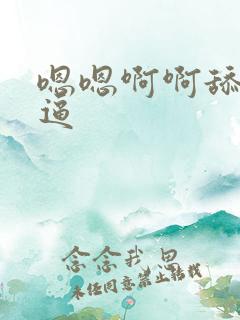 嗯嗯啊啊舔
逼
念念我思
未经同意禁止转载